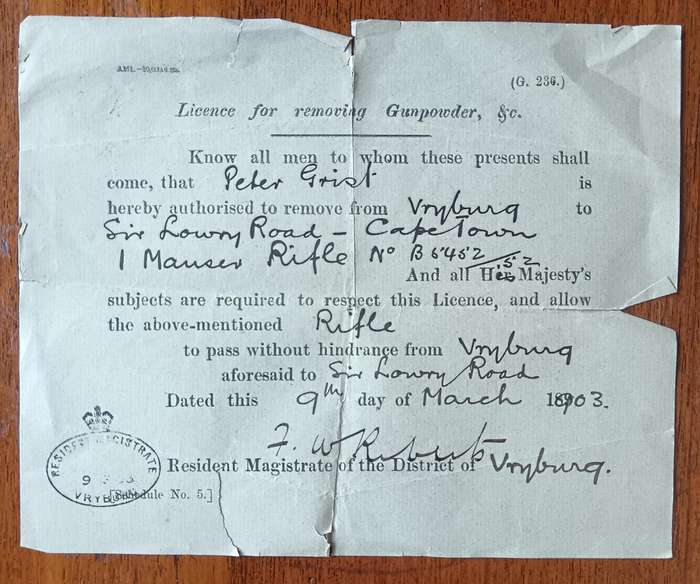 (G. 236.)
Licence for removing Gunpowder, &c.
Know all men to whom these presents shall
come, that Peter Grist is
hereby authorised to remove from Vryburg to
Sir Lowry Road - Cape Town
1 Mauser Rifle No B 5452
52
And all His Majesty's
subjects are required to respect this Licence, and allow
the above-mentioned Rifle
to pass without hindrance from Vryburg
aforesaid to Sir Lowry Road
Dated this 9th day of March 1903.
F. W
Resident Magistrate of the District of Vryburg.
RESIDENT MAGISTRATE
9
VRYBURG
[Schedule No. 5.]